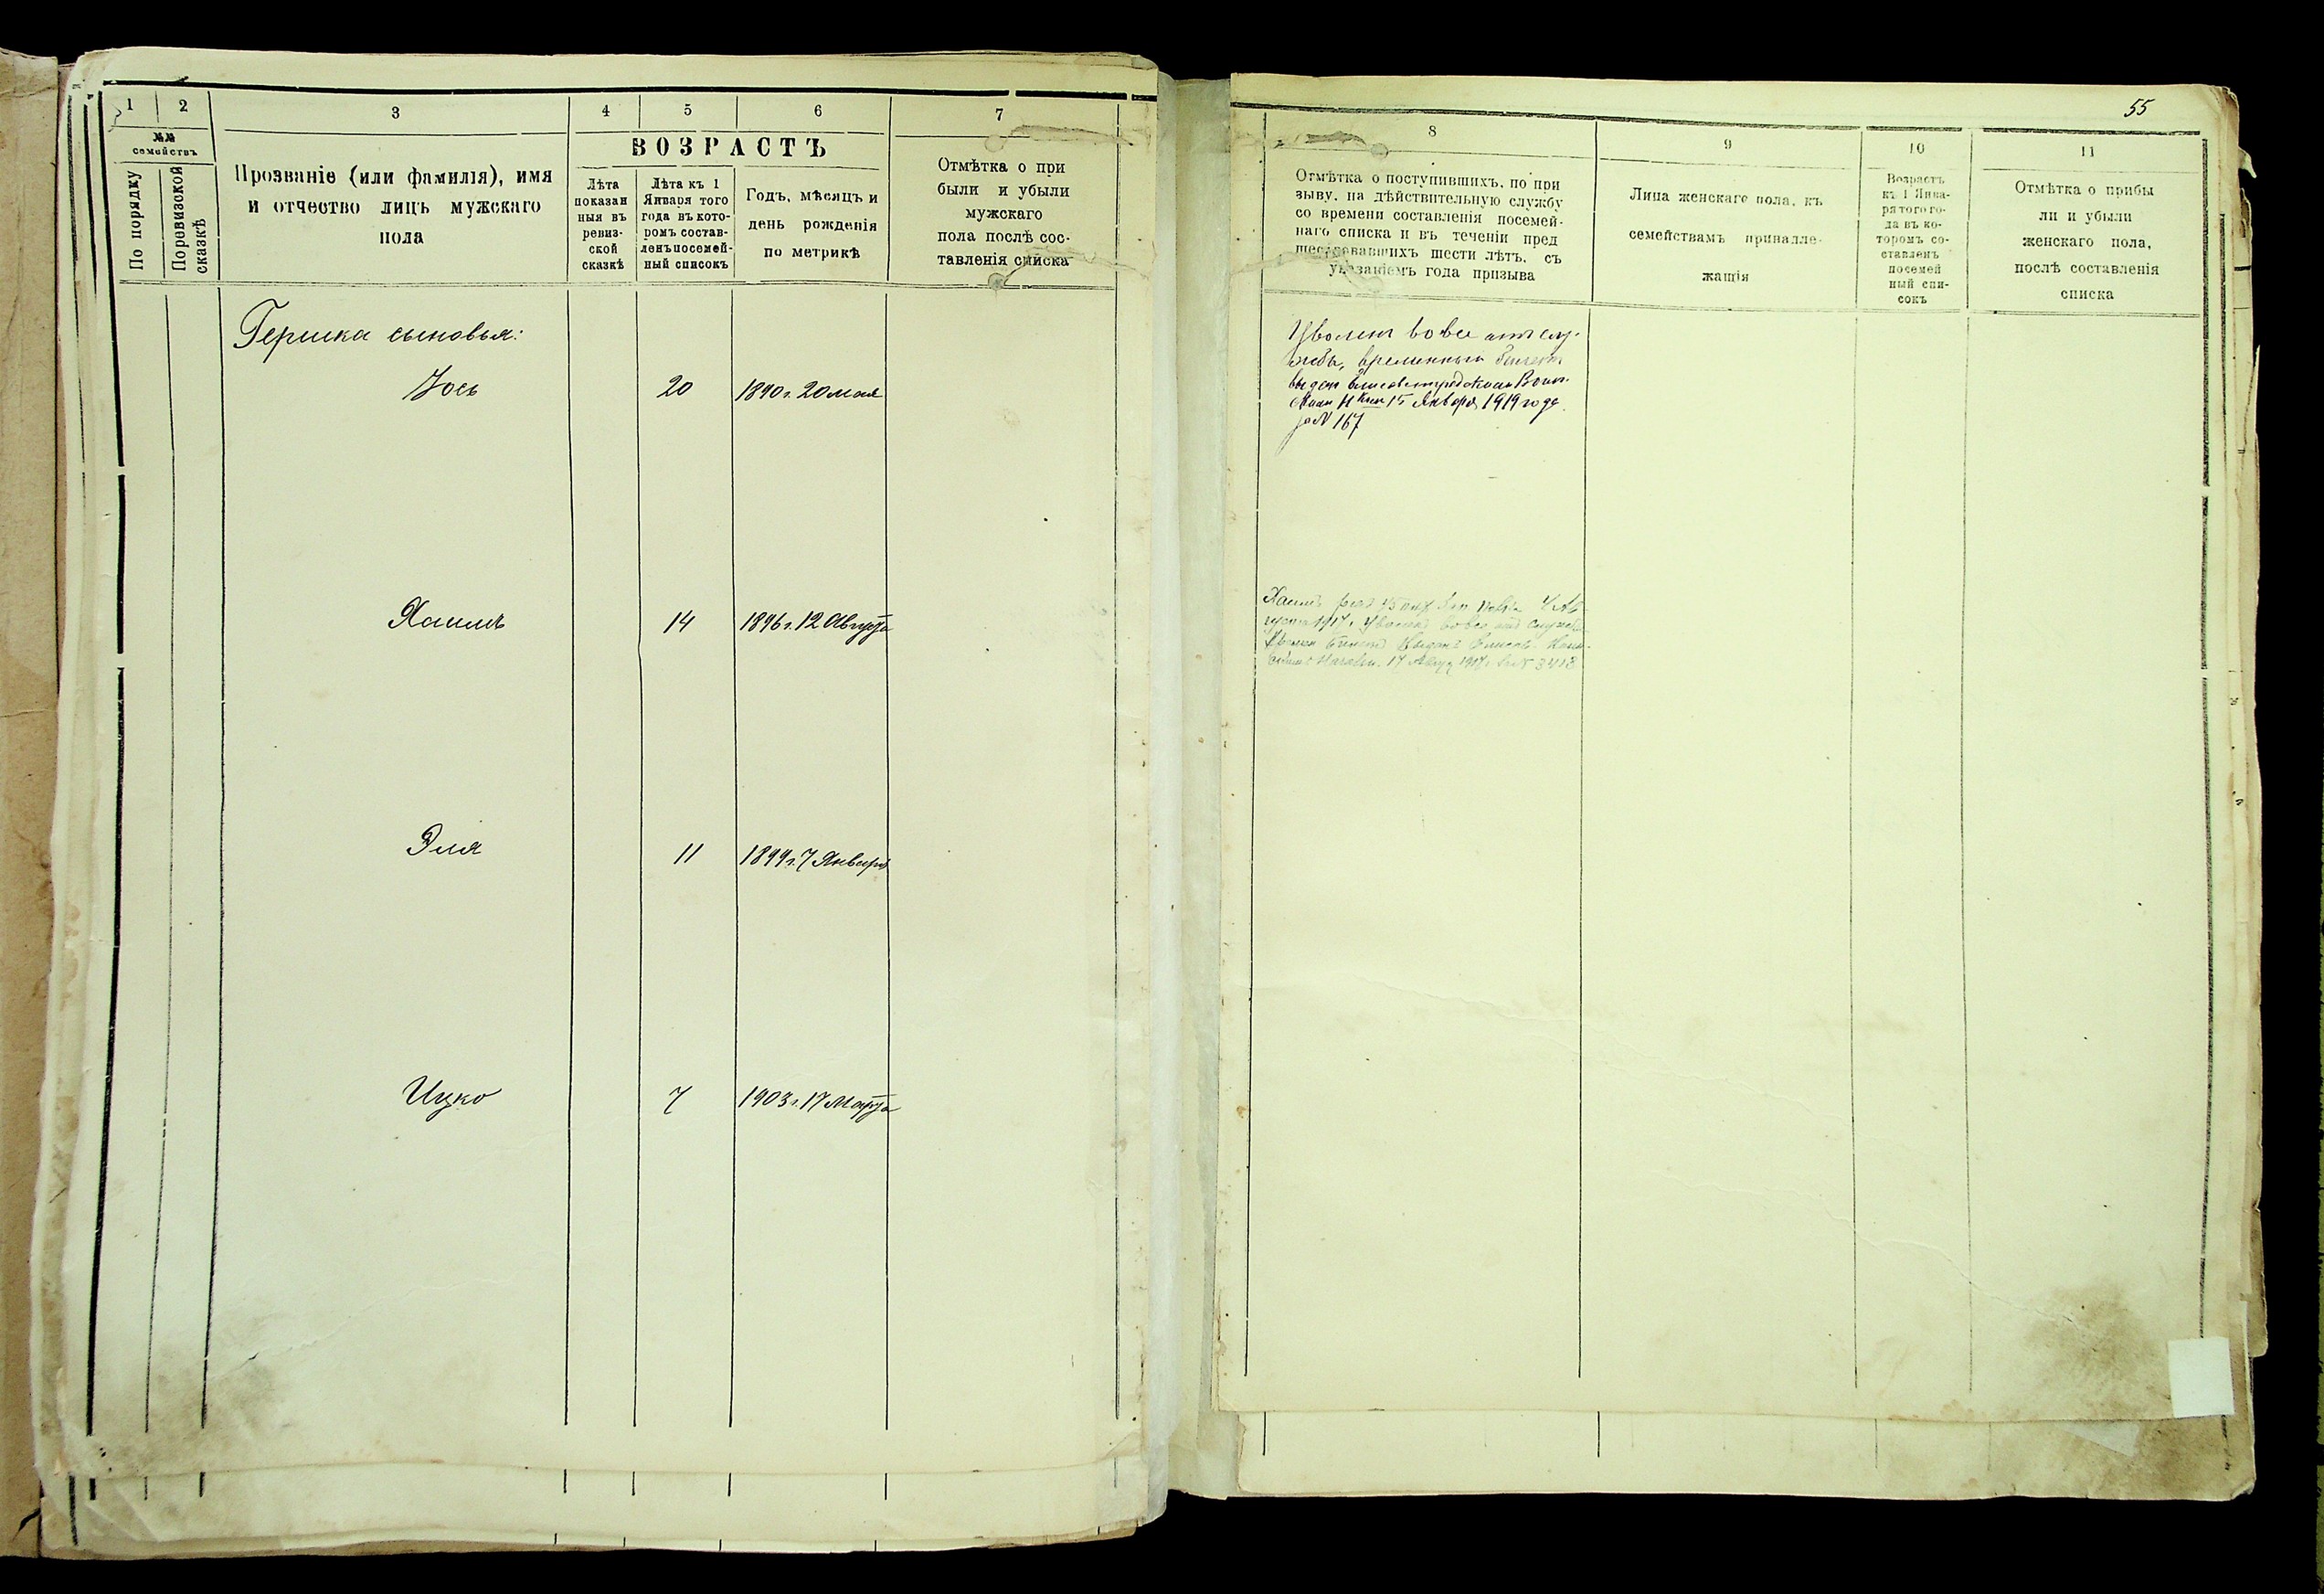 1
2
3
4
5
6
7
№№
семействъ
По порядку
По ревизской
сказкѣ
Прозваніе (или фамилія), имя
и отчество лицъ мужскаго
пола
ВОЗРАСТЪ
Лѣта
показан
ныя въ
ревиз-
ской
сказкѣ
Лѣта къ 1
Января того
года въ кото-
ромъ состав-
ленъ посемей-
ный списокъ
Годъ, мѣсяцъ и
день рожденія
по метрикѣ
Отмѣтка о при
были и убыли
мужскаго
пола послѣ сос-
тавленія списка
Гершка сыновья:
Іось 20 1890 г. 20 мая
Хаимъ 14 1896 г. 12 Августа
Эля 11 1899 г. 7 Января
Ицко 7 1903 г. 17 Марта
55
8
9
10
11
Отмѣтка о поступившихъ, по при
зыву, на дѣйствительную службу
со времени составленія посемей-
наго списка и въ теченіи пред
шествовавшихъ шести лѣтъ, съ
указаніемъ года призыва
Лица женскаго пола, къ
семействамъ принадле-
жащія
Возрастъ
къ 1 Янва-
ря того го-
да въ ко-
торомъ со-
ставленъ
посемей
ный спи-
сокъ
Отмѣтка о прибы
ли и убыли
женскаго пола,
послѣ составленія
списка
Уволен вовсе от служ-
бы, временный билет
выдан Елисаветградским Воин.
Нач 15 Января 1919 года
за № 167
Хаимъ 4 Ав
густа 1917 г. уволенъ вовсе отъ службы
билетъ выданъ Елисав.
17 Авгу 1917 г. за № 3418